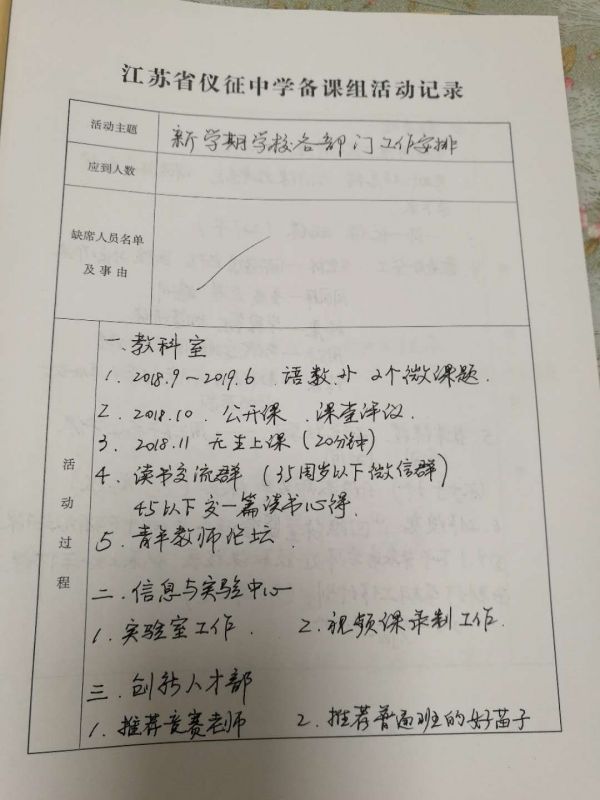 江苏省仪征中学备课组活动记录
活动主题 新学期学校各部门工作安排
应到人数
缺席人员名单
及事由
活动过程
一、教科室
1. 2018.9～2019.6 语数外 2个微课题.
2. 2018.10 公开课 .课堂评议.
3. 2018.11 无生上课 (20分钟)
4. 读书交流群 (35周岁以下微信群)
45以下交一篇读书心得.
5. 青年教师论坛.
二. 信息与实验中心
1. 实验室工作. 2. 视频课录制工作.
三. 创新人才部
1. 推荐竞赛老师 2. 推荐普通班的好苗子